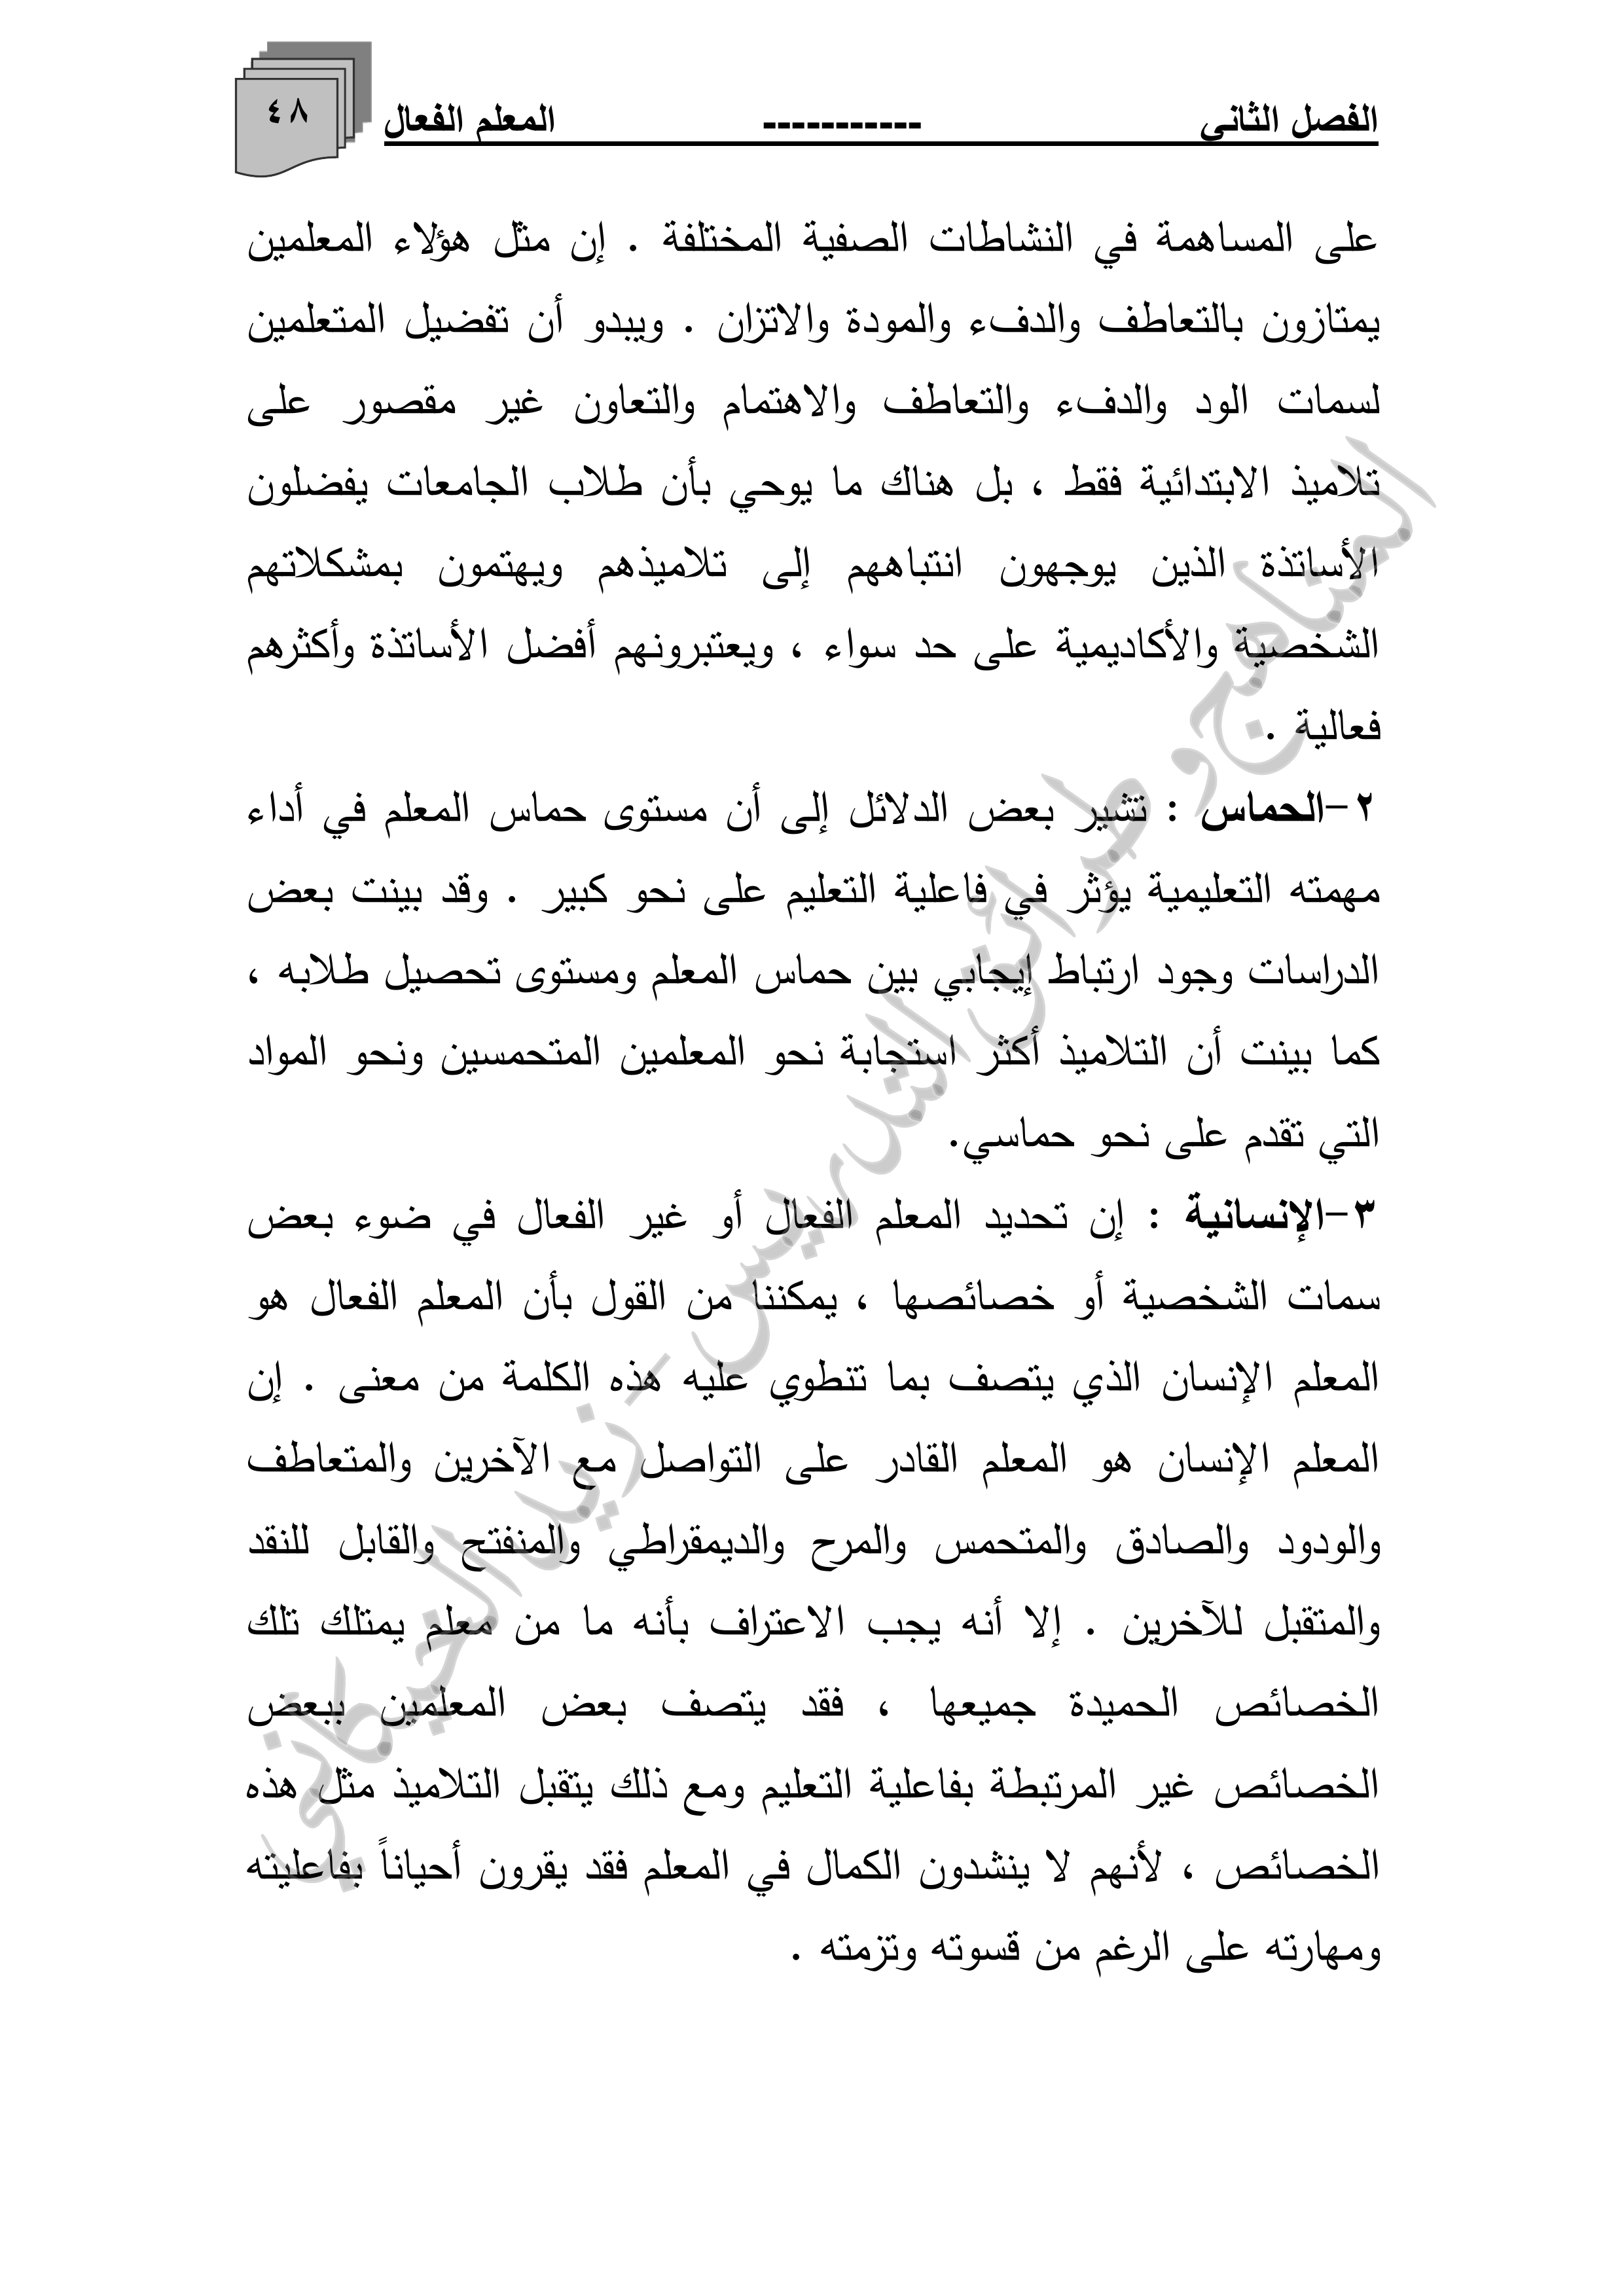 الفصل الثاني ----------- المعلم الفعال
٤٨
على المساهمة في النشاطات الصفية المختلفة . إن مثل هؤلاء المعلمين
يمتازون بالتعاطف والدفء والمودة والاتزان . ويبدو أن تفضيل المتعلمين
لسمات الود والدفء والتعاطف والاهتمام والتعاون غير مقصور على
تلاميذ الابتدائية فقط ، بل هناك ما يوحي بأن طلاب الجامعات يفضلون
الأساتذة الذين يوجهون انتباههم إلى تلاميذهم ويهتمون بمشكلاتهم
الشخصية والأكاديمية على حد سواء ، ويعتبرونهم أفضل الأساتذة وأكثرهم
فعالية .
٢-الحماس : تشير بعض الدلائل إلى أن مستوى حماس المعلم في أداء
مهمته التعليمية يؤثر في فاعلية التعليم على نحو كبير . وقد بينت بعض
الدراسات وجود ارتباط إيجابي بين حماس المعلم ومستوى تحصيل طلابه ،
كما بينت أن التلاميذ أكثر استجابة نحو المعلمين المتحمسين ونحو المواد
التي تقدم على نحو حماسي.
٣-الإنسانية : إن تحديد المعلم الفعال أو غير الفعال في ضوء بعض
سمات الشخصية أو خصائصها ، يمكننا من القول بأن المعلم الفعال هو
المعلم الإنسان الذي يتصف بما تنطوي عليه هذه الكلمة من معنى . إن
المعلم الإنسان هو المعلم القادر على التواصل مع الآخرين والمتعاطف
والودود والصادق والمتحمس والمرح والديمقراطي والمنفتح والقابل للنقد
والمتقبل للآخرين . إلا أنه يجب الاعتراف بأنه ما من معلم يمتلك تلك
الخصائص الحميدة جميعها ، فقد يتصف بعض المعلمين ببعض
الخصائص غير المرتبطة بفاعلية التعليم ومع ذلك يتقبل التلاميذ مثل هذه
الخصائص ، لأنهم لا ينشدون الكمال في المعلم فقد يقرون أحياناً بفاعليته
ومهارته على الرغم من قسوته وتزمته .
المناهج و طرائق التدريس - زيد الخيكاني